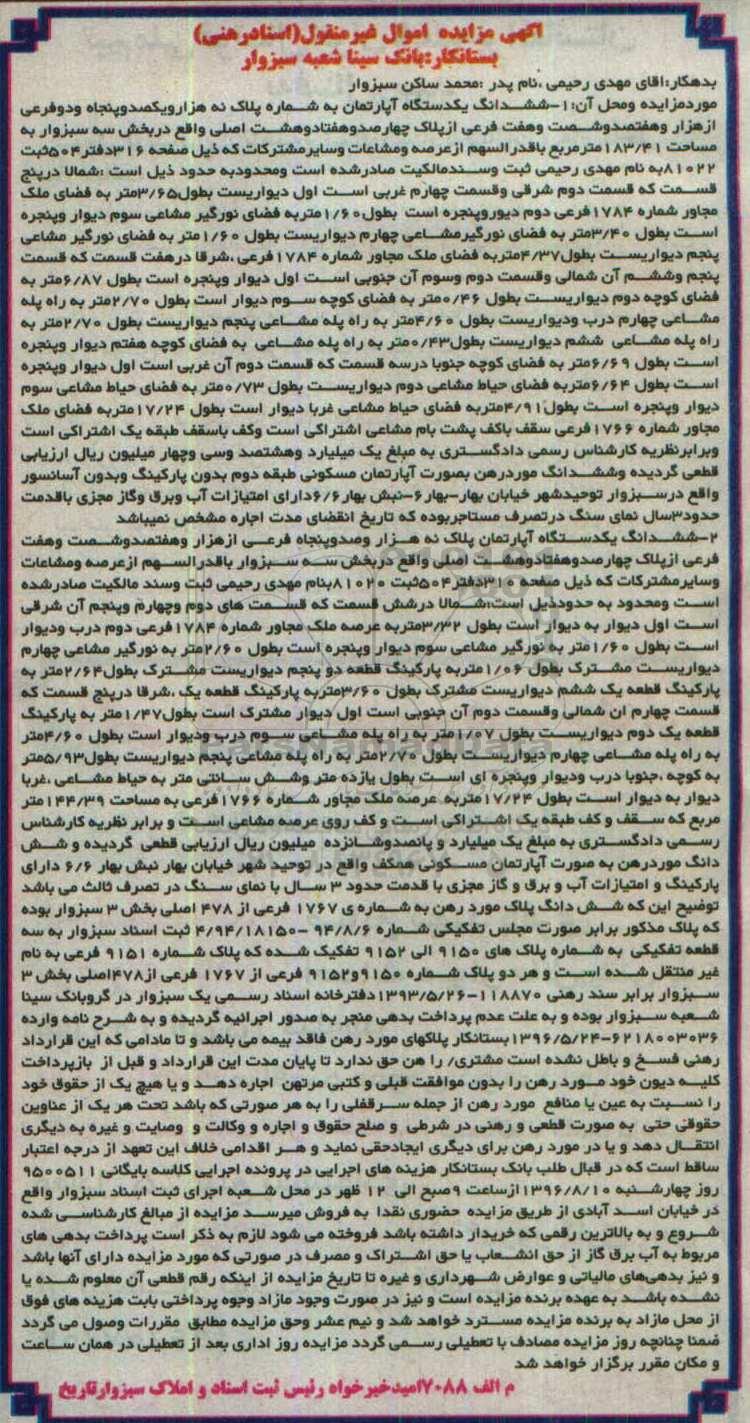 آگهی مزایده اموال غیرمنقول(اسنادرهنی)
بستانکار:بانک سینا شعبه سبزوار
بدهکار:آقای مهدی رحیمی ،نام پدر :محمد ساکن سبزوار
موردمزایده ومحل آن:۱-ششدانگ یکدستگاه آپارتمان به شماره پلاک نه هزارویکصدوپنجاه ودوفرعی
ازهزار وهفتصدوشصت وهفت فرعی ازپلاک چهارصدوهفتادوهشت اصلی واقع دربخش سه سبزوار به
مساحت ۱۸۳/۴۱مترمربع باقدرالسهم ازعرصه ومشاعات وسایرمشترکات که ذیل صفحه ۳۱۶دفتر۵۰۴ثبت
۸۱۰۲۲به نام مهدی رحیمی ثبت وسندمالکیت صادرشده است ومحدودبه حدود ذیل است :شمالا درپنج
قسمت که قسمت دوم شرقی وقسمت چهارم غربی است اول دیواریست بطول۳/۶۵متر به فضای ملک
مجاور شماره ۱۷۸۴فرعی دوم دیوروپنجره است بطول۱/۶۰متربه فضای نورگیر مشاعی سوم دیوار وپنجره
است بطول ۳/۴۰متر به فضای نورگیرمشاعی چهارم دیواریست بطول ۱/۶۰متر به فضای نورگیر مشاعی
پنجم دیواریست بطول۴/۳۷متربه فضای ملک مجاور شماره ۱۷۸۴فرعی ،شرقا درهفت قسمت که قسمت
پنجم وششم آن شمالی وقسمت دوم وسوم آن جنوبی است اول دیوار وپنجره است بطول ۶/۸۷متر به
فضای کوچه دوم دیواریست بطول ۰/۴۶متر به فضای کوچه سوم دیوار است بطول ۲/۷۰متر به راه پله
مشاعی چهارم درب ودیواریست بطول ۴/۶۰متر به راه پله مشاعی پنجم دیواریست بطول ۲/۷۰متر به
راه پله مشاعی ششم دیواریست بطول۰/۴۳متر به راه پله مشاعی به فضای کوچه هفتم دیوار وپنجره
است بطول ۶/۶۹متر به فضای کوچه جنوبا درسه قسمت که قسمت دوم آن غربی است اول دیوار وپنجره
است بطول ۶/۶۴متربه فضای حیاط مشاعی دوم دیواریست بطول ۰/۷۳متر به فضای حیاط مشاعی سوم
دیوار وپنجره است بطول۴/۹۱متربه فضای حیاط مشاعی غربا دیوار است بطول ۱۷/۲۴متربه فضای ملک
مجاور شماره ۱۷۶۶فرعی سقف باکف پشت بام مشاعی اشتراکی است وکف باسقف طبقه یک اشتراکی است
وبرابرنظریه کارشناس رسمی دادگستری به مبلغ یک میلیارد وهشتصد وسی وچهار میلیون ریال ارزیابی
قطعی گردیده وششدانگ موردرهن بصورت آپارتمان مسکونی طبقه دوم بدون پارکینگ وبدون آسانسور
واقع درسبزوار توحیدشهر خیابان بهار-بهار۶-نبش بهار۶/۶دارای امتیازات آب وبرق وگاز مجزی باقدمت
حدود۳سال نمای سنگ درتصرف مستاجربوده که تاریخ انقضای مدت اجاره مشخص نمیباشد
۲-ششدانگ یکدستگاه آپارتمان پلاک نه هزار وصدوپنجاه فرعی ازهزار وهفتصدوشصت وهفت
فرعی ازپلاک چهارصدوهفتادوهشت اصلی واقع دربخش سه سبزوار باقدرالسهم ازعرصه ومشاعات
وسایرمشترکات که ذیل صفحه ۳۱۰دفتر۵۰۴ثبت ۸۱۰۲۰بنام مهدی رحیمی ثبت وسند مالکیت صادرشده
است ومحدود به حدودذیل است:شمالا درشش قسمت که قسمت های دوم وچهارم وپنجم آن شرقی
است اول دیوار به دیوار است بطول ۳/۳۲متربه عرصه ملک مجاور شماره ۱۷۸۴فرعی دوم درب ودیوار
است بطول ۱/۶۰متر به نورگیر مشاعی سوم دیوار وپنجره است بطول ۲/۶۰متر به نورگیر مشاعی چهارم
دیواریست مشترک بطول ۱/۰۶متربه پارکینگ قطعه دو پنجم دیواریست مشترک بطول۲/۶۴متر به
پارکینگ قطعه یک ششم دیواریست مشترک بطول ۳/۶۰متربه پارکینگ قطعه یک ،شرقا درپنج قسمت که
قسمت چهارم ان شمالی وقسمت دوم آن جنوبی است اول دیوار مشترک است بطول۱/۴۷متر به پارکینگ
قطعه یک دوم دیواریست بطول ۱/۰۷متر به راه پله مشاعی سوم درب ودیوار است بطول ۴/۶۰متر
به راه پله مشاعی چهارم دیواریست بطول ۲/۷۰متر به راه پله مشاعی پنجم دیواریست بطول۵/۹۳متر
به کوچه ،جنوبا درب ودیوار وپنجره ای است بطول یازده متر وشش سانتی متر به حیاط مشاعی ،غربا
دیوار به دیوار است بطول ۱۷/۲۴متربه عرصه ملک مجاور شماره ۱۷۶۶فرعی به مساحت ۱۴۴/۳۹متر
مربع که سقف و کف طبقه یک اشتراکی است و کف روی عرصه مشاعی است و برابر نظریه کارشناس
رسمی دادگستری به مبلغ یک میلیارد و پانصدوشانزده میلیون ریال ارزیابی قطعی گردیده و شش
دانگ موردرهن به صورت آپارتمان مسکونی همکف واقع در توحید شهر خیابان بهار نبش بهار ۶/۶ دارای
پارکینگ و امتیازات آب و برق و گاز مجزی با قدمت حدود ۳ سال با نمای سنگ در تصرف ثالث می باشد
توضیح این که شش دانگ پلاک مورد رهن به شماره ی ۱۷۶۷ فرعی از ۴۷۸ اصلی بخش ۳ سبزوار بوده
که پلاک مذکور برابر صورت مجلس تفکیکی شماره ۹۴/۸/۶ -۴/۹۴/۱۸۱۵۰ ثبت اسناد سبزوار به سه
قطعه تفکیکی به شماره پلاک های ۹۱۵۰ الی ۹۱۵۲ تفکیک شده که پلاک شماره ۹۱۵۱ فرعی به نام
غیر منتقل شده است و هر دو پلاک شماره ۹۱۵۰و۹۱۵۲ فرعی از ۱۷۶۷ فرعی از۴۷۸اصلی بخش ۳
سبزوار برابر سند رهنی ۱۱۸۸۷۰-۱۳۹۳/۵/۲۶دفترخانه اسناد رسمی یک سبزوار در گروبانک سینا
شعبه سبزوار بوده و به علت عدم پرداخت بدهی منجر به صدور اجرائیه گردیده و به شرح نامه وارده
۶۲۱۸۰۰۳۰۳۶-۱۳۹۶/۵/۲۴بستانکار پلاکهای مورد رهن فاقد بیمه می باشد و تا مادامی که این قرارداد
رهنی فسخ و باطل نشده است مشتری/ را هن حق ندارد تا پایان مدت این قرارداد و قبل از بازپرداخت
کلیه دیون خود مورد رهن را بدون موافقت قبلی و کتبی مرتهن اجاره دهد و یا هیچ یک از حقوق خود
را نسبت به عین یا منافع مورد رهن از جمله سرقفلی را به هر صورتی که باشد تحت هر یک از عناوین
حقوقی حتی به صورت قطعی و رهنی در شرطی و صلح حقوق و اجاره و وکالت و وصایت و غیره به دیگری
انتقال دهد و یا در مورد رهن برای دیگری ایجادحقی نماید و هر اقدامی خلاف این تعهد از درجه اعتبار
ساقط است که در قبال طلب بانک بستانکار هزینه های اجرایی در پرونده اجرایی کلاسه بایگانی ۹۵۰۰۵۱۱
روز چهارشنبه ۱۳۹۶/۸/۱۰ازساعت ۹صبح الی ۱۲ ظهر در محل شعبه اجرای ثبت اسناد سبزوار واقع
در خیابان اسد آبادی از طریق مزایده حضوری نقدا به فروش میرسد مزایده از مبالغ کارشناسی شده
شروع و به بالاترین رقمی که خریدار داشته باشد فروخته می شود لازم به ذکر است پرداخت بدهی های
مربوط به آب برق گاز از حق انشعاب یا حق اشتراک و مصرف در صورتی که مورد مزایده دارای آنها باشد
و نیز بدهی‌های مالیاتی و عوارض شهرداری و غیره تا تاریخ مزایده از اینکه رقم قطعی آن معلوم شده یا
نشده باشد به عهده برنده مزایده است و نیز در صورت وجود مازاد وجوه پرداختی بابت هزینه های فوق
از محل مازاد به برنده مزایده مسترد خواهد شد و نیم عشر وحق مزایده مطابق مقررات وصول می گردد
ضمنا چنانچه روز مزایده مصادف با تعطیلی رسمی گردد مزایده روز اداری بعد از تعطیلی در همان ساعت
و مکان مقرر برگزار خواهد شد
م الف ۷۰۸۸امیدخیرخواه رئیس ثبت اسناد و املاک سبزوارتاریخ